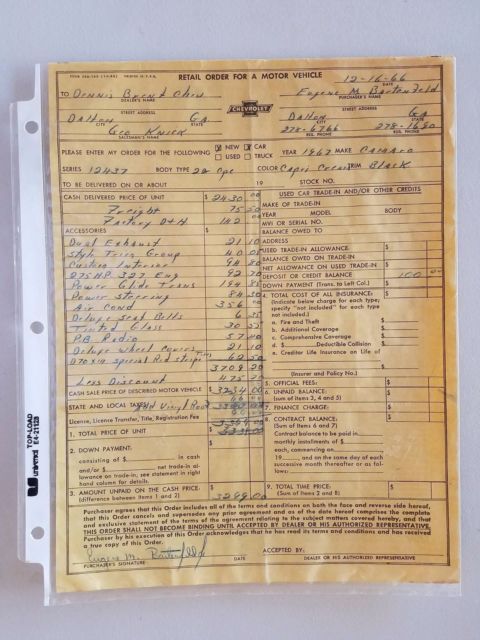 RETAIL ORDER FOR A MOTOR VEHICLE 12-16-66
DATE
TO Dennis Chev Eugene M.
DEALER'S NAME PURCHASER'S NAME
CHEVROLET
STREET ADDRESS STREET ADDRESS
Dalton Ga Dalton Ga
CITY STATE CITY STATE
Geo 278-6766 278-1680
SALESMAN'S NAME BUS. PHONE RES. PHONE
PLEASE ENTER MY ORDER FOR THE FOLLOWING NEW CAR YEAR 1967 MAKE Camaro
USED TRUCK
SERIES 12437 BODY TYPE 2d Cpe COLOR Capri Cream TRIM Black
TO BE DELIVERED ON OR ABOUT 19 STOCK NO.
CASH DELIVERED PRICE OF UNIT $ 2430 00
USED CAR TRADE-IN AND/OR OTHER CREDITS
Freight 75
MAKE OF TRADE-IN
Factory D+H 142
YEAR MODEL BODY
MVI OR SERIAL NO.
ACCESSORIES
BALANCE OWED TO
Dual Exhaust 21 10
ADDRESS
Style Trim Group 40
USED TRADE-IN ALLOWANCE $
Custom Interior 94 80
BALANCE OWED ON TRADE-IN $
275 HP 327 Eng 92 70
NET ALLOWANCE ON USED TRADE-IN $
Power Glide Trans 194 85
DEPOSIT OR CREDIT BALANCE 100
Power steering 84
DOWN PAYMENT (Trans. to Left Col.) $
Air Cond 356 00
4. TOTAL COST OF ALL INSURANCE: $
(Indicate below charge for each type; specify "not included" for each type not included.)
Deluxe Seat Belts 6
a. Fire and Theft $
Tinted Glass 30
b. Additional Coverage $
P.B. Radio 57 40
c. Comprehensive Coverage $
Deluxe wheel covers 21 10
d. $ Deductible Collision $
D70x14 special Red stripe Tires 62 50
e. Creditor Life Insurance on Life of
3709 20
(Insurer and Policy No.)
Less Discount 475 20
5. OFFICIAL FEES: $
CASH SALE PRICE OF DESCRIBED MOTOR VEHICLE $ 3234 00
6. UNPAID BALANCE: $
(Sum of items 3, 4 and 5)
STATE AND LOCAL TAXES Vinyl Roof
7. FINANCE CHARGE: $
License, License Transfer, Title, Registration Fee
8. CONTRACT BALANCE: $
(Sum of items 6 and 7)
1. TOTAL PRICE OF UNIT $
Contract balance to be paid in
monthly installments of $
each, commencing on
19 , and on the same day of each successive month thereafter or as follows:
2. DOWN PAYMENT:
consisting of $ in cash
and/or $ net trade-in allowance on trade-in, see statement in right hand column for details. $
3. AMOUNT UNPAID ON THE CASH PRICE: $ 3299.00
(difference between items 1 and 2)
9. TOTAL TIME PRICE: $
(Sum of Items 2 and 8)
Purchaser agrees that this Order includes all of the terms and conditions on both the face and reverse side hereof,
that this Order cancels and supersedes any prior agreement and as of the date hereof comprises the complete
and exclusive statement of the terms of the agreement relating to the subject matters covered hereby, and that
THIS ORDER SHALL NOT BECOME BINDING UNTIL ACCEPTED BY DEALER OR HIS AUTHORIZED REPRESENTATIVE.
Purchaser by his execution of this Order acknowledges that he has read its terms and conditions and has received
a true copy of this Order.
Eugene M.
ACCEPTED BY:
PURCHASER'S SIGNATURE DATE DEALER OR HIS AUTHORIZED REPRESENTATIVE
TOP-LOAD
unvmd E4-21128